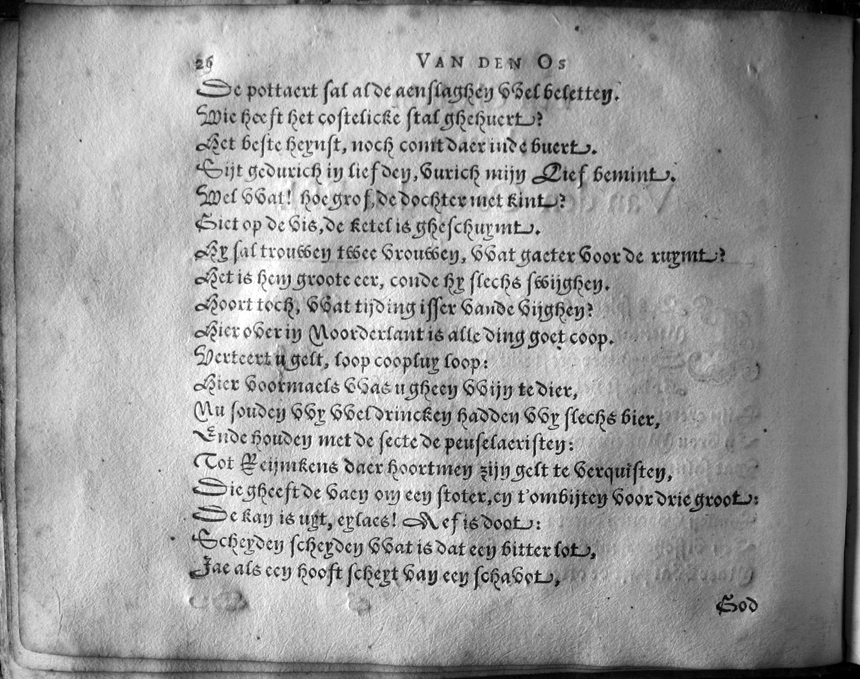 26 VAN DEN OS
De pottaert sal al de aenslaghen wel beletten.
Wie heeft het costelicke stal ghehuert?
Het beste heynst, noch comt daer inde buert.
Sijt gedurich in liefden, vurich mijn Lief bemint.
Wel wat! hoe grof, de dochter met kint?
Siet op de vis, de ketel is gheschuymt.
Hy sal trouwen twee vrouwen, wat gaeter voor de ruymt?
Het is hem groote eer, conde hy slechs swijghen.
Hoort toch, wat tijding isser vande vijghen?
Hier over in Noorderlant is alle ding goet coop.
Verteert u gelt, loop coopluy loop:
Hier voormaels was u gheen wijn te dier,
Nu souden wy wel drincken hadden wy slechs bier,
Ende houden met de secte de peuselaeristen:
Tot Reijmkens daer hoortmen zijn gelt te verquisten,
Die gheeft de vaen om een stoter, en t'ombijten voor drie groot:
De kan is uyt, eylaes! Aef is doot:
Scheyden scheyden wat is dat een bitter lot,
Jae als een hooft scheyt van een schavot,
God